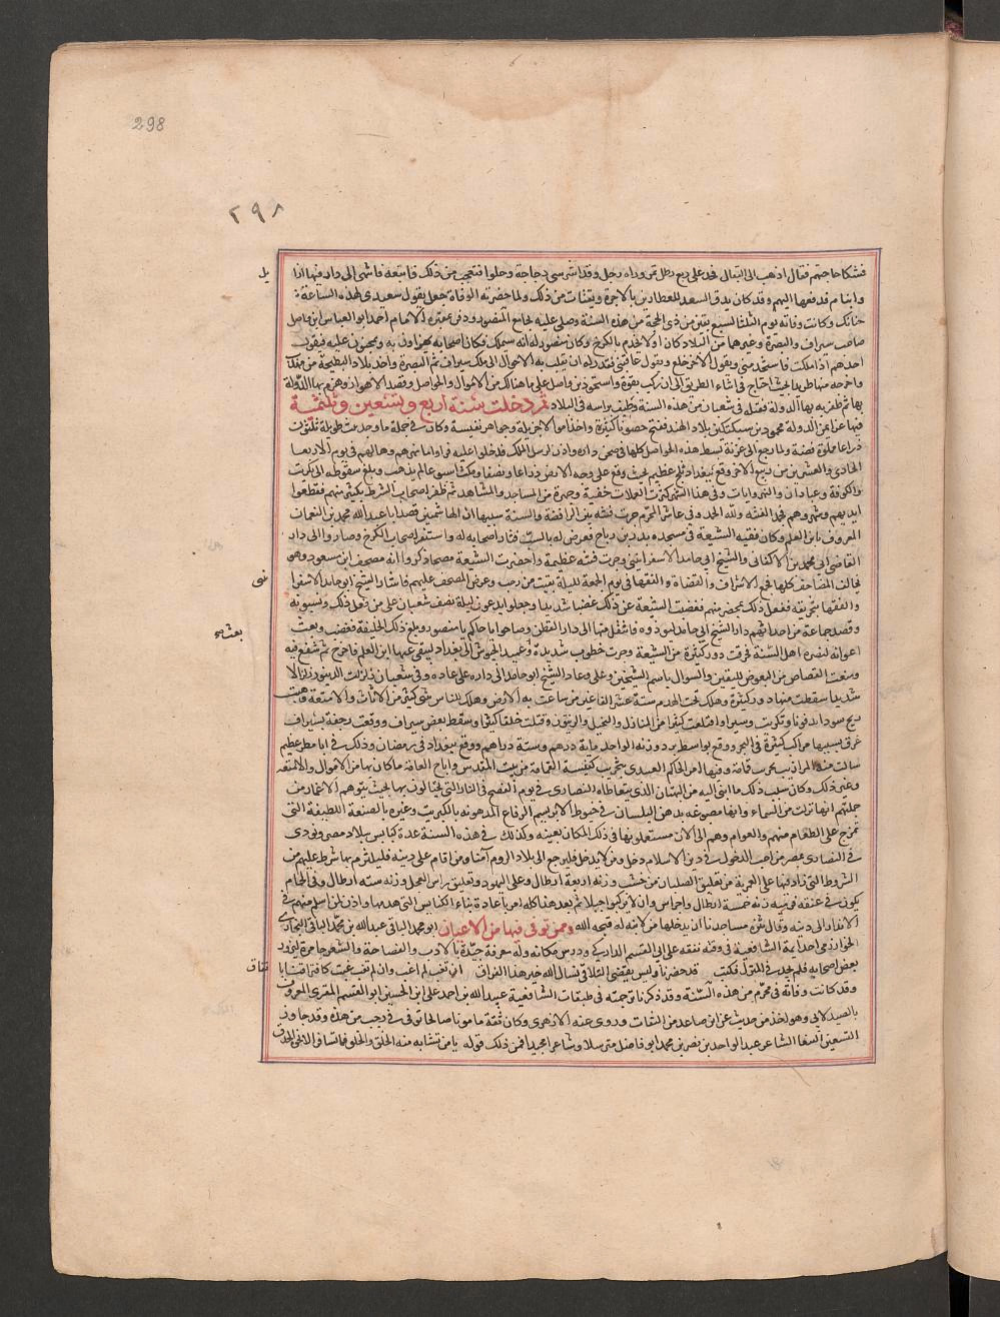 298
٢٩٨
فشكا حاجتهم فقال اذهب الى البقال فخذ على ربع رطل تمر وراه رجل وقد اشترى دجاجة وحلوا فتعجب من ذلك فاتبعه فانتهى الى دار فيها
وايتام فدفعها اليهم وقد كان يدق السعد للعطارين بالاجرة ويقتات من ذلك ولما حضرته الوفاة جعل يقول سيدي لهذه الساعة
خباتك وكانت وفاته يوم الثلثا لسبع بقين من ذي الحجة من هذه السنة وصلي عليه بجامع المنصور ودفن بمقبرة الامام احمد ابو العباس ابن واصل
صاحب سيراف والبصرة وغيرهما من البلاد كان اولا يخدم بالكرخ وكان متصورا له انه سيملك فكان اصحابه يهزاون به
احدهم اذا ملكت فاستخدمني ويقول الاخر اخلع ويقول عاقبني فقدر له ان تقلبت به الاحوال الى ملك سيراف ثم البصرة واخذ بلاد البطيحة من
واخرجه منها طريدا بحيث احتاج في اثناء الطريق الى ان ركب بقرة واستحوذ ابن واصل على ما هنالك من الاموال والحواصل وقصد الاهواز وهزم بها الدولة
بهاثم ظفر به بها الدولة فقتله في شعبان من هذه السنة وطيف براسه في البلاد ثم دخلت سنة اربع وتسعين وثلثمائة
فيها غزا يمين الدولة محمود بن سبكتكين بلاد الهند ففتح حصونا كثيرة واخذ اموالا جزيلة وجواهر نفيسة وكان في جملة ما وجد بيت طوله ثلثون
ذراعا مملوة فضة ولما رجع الى غزنة بسط هذه الحواصل كلها في صحن داره واذن لرسل الملك فدخلوا عليه فراوا ما بهرهم وهالهم في يوم الاربعا
الحادي والعشرين من ربيع الاخر وقع ببغداد ثلج عظيم بحيث وقع على وجه الارض ذراعا ونصفا ومكث اسبوعا لم يذب وبلغ سقوطه الى تكريت
والكوفة وعبادان والنهروانات وفي هذا الشهر كثرت العملات خفية وجهرة من المساجد والمشاهد ثم ظفر اصحاب الشرط بكثير منهم فقطعوا
ايديهم وشهروهم ولله الحمد وفي عاشر المحرم جرت فتنة بين الرافضة والسنة سببها ان الهاشميين قصد ابا عبد الله محمد بن النعمان
المعروف بابن المعلم وكان فقيه الشيعة في مسجده بدرب رباح فعرض له بالسب فثار اصحابه له واستنفر اصحاب الكرخ وصاروا الى دار
القاضي ابي محمد بن الاكفاني والشيخ ابي حامد الاسفرايني وجرت فتنة عظيمة واحضرت الشيعة مصحفا ذكروا انه مصحف ابن مسعود وهو
يخالف المصاحف كلها فجمع الاشراف والقضاة والفقها في يوم الجمعة لليلة بقيت من رجب وعرض المصحف عليهم فاشار الشيخ ابو حامد الاسفرا
والفقها بتحريقه ففعل ذلك بمحضر منهم فغضب الشيعة عن ذلك غضبا شديدا وجعلوا يدعون ليلة نصف شعبان على من فعل ذلك ويسبونه
وقصد جماعة من احداثهم دار الشيخ ابي حامد ليوذوه فانتقل منها الى دار القطن وصاحوا يا حاكم يا منصور وبلغ ذلك الخليفة فغضب وبعث
اعوانه لنصرة اهل السنة فحرقت دور كثيرة من الشيعة وجرت خطوب شديدة وبعث عميد الجيوش الى بغداد لينفي عنها ابن المعلم فاخرج ثم شفع فيه
ومنعت القصاص من التعرض للتعيين والسوال باسم الشيخين وعلي وعاد الشيخ ابو حامد الى داره على عادته وفي شعبان زلزلت الدينور زلزالا
شديدا سقطت منها دور كثيرة وهلك تحت الهدم ستة عشر الفا غير من ساخت به الارض وهلك للناس شي كثير من الاثاث والامتعة وهبت
ريح سودا بدقوقا وتكريت وشيراز فاقلعت كثيرا من المنازل والنخيل والزيتون وقتلت خلقا كثيرا وسقط بعض سيراف ووقعت رجفة بسيراف
غرق بسببها مراكب كثيرة في البحر ووقع بواسط برد وزنة الواحد ماية درهم وستة دراهم ووقع ببغداد في رمضان وذلك في ايار مطر عظيم
سالت منه المرازيب تخريب قمامة وفيها امر الحاكم العبيدي بتخريب كنيسة القمامة من بيت المقدس واباح للعامة ما كان بها من الاموال والامتعة
وغير ذلك وكان سبب ذلك ما انهى اليه من البهتان الذي يتعاطاه النصارى في يوم الفصح في النار التي يحتالون بها بحيث يتوهم الاغمار من
جهلتهم انها نزلت من السماء وانما مصنوعه بدهن البلسان في خيوط الابريسم الرفاع المدهونه بالكبريت وغيره بالصنعة اللطيفة التي
تروج على الطغام منهم والعوام وهم الى الان مستعملونها في ذلك المكان بعينه وكذلك في هذه السنة هدم عدة كنايس ببلاد مصر ونودي
في النصارى بمصر من احب الدخول في دين الاسلام دخل ومن لا يدخل فليرجع الى بلاد الروم امنا ومن اقام على دينه فليلتزم بما شرط عليهم من
الشروط التي زاد فيها على العمرية من تعليق الصلبان من خشب وزنه اربعة ارطال وعلى اليهود وتعليق راس العجل وزنه ستة ارطال وفي الحمام
يكون في عنقه قربة زنة خمسة ارطال واجراس وان لا يركبوا خيلا ثم بعد هذا كله امر باعادة بناء الكنايس التي هدمها واذن لمن اسلم منهم في
الارتداد الى دينه وقال ننزه مساجدنا ان يدخلها من لا نية له قبحه الله وممن توفي فيها من الاعيان ابو محمد الباقي عبد الله بن محمد الباقي البخاري
الخوارزمي احد ائمة الشافعية في وقته تفقه على ابي القسم الداركي ودرس مكانه وله معرفة جيدة بالادب والفصاحة والشعر جا مرة ليزور
بعض اصحابه فلم يجده في المنزل فكتب قد حضرنا وليس يقضى التلاقي نسال الله خير هذا الفراق ان تغب لم اغب وان لم تغب غبت كان افتراقنا با
تفاق
وقد كانت وفاته في محرم من هذه السنة وقد ذكرنا ترجمته في طبقات الشافعية عبد الله بن احمد علي ابن الحسين ابو القسم المقري المعروف
بالصيدلاني وهو اخر من حدث عن ابن صاعد من الثقات وروى عنه الازهري وكان ثقة مامونا صالحا توفي في رجب من هذه وقد جاوز
التسعين الببغا الشاعر عبد الواحد بن نصر بن محمد ابو الفرج فاضل مترسلا وشاعرا مجيدا فمن ذلك قوله يا من تشابه منه الخلق والخلق فما تسافر الا نحوه الحدق